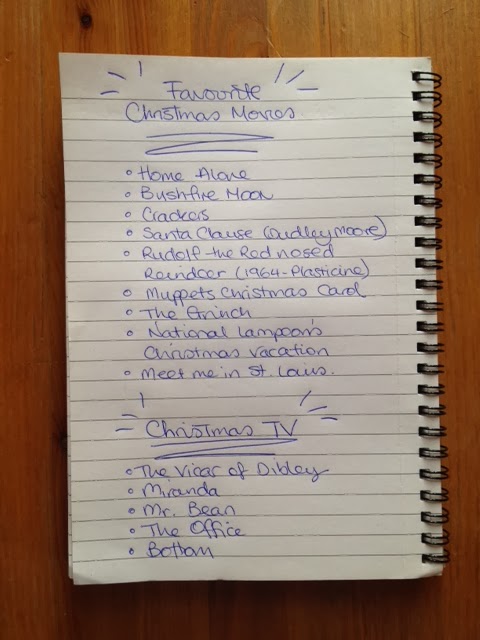 Favourite
Christmas Movies
• Home Alone
• Bushfire Moon
• Crackers
• Santa Clause (Dudley Moore)
• Rudolf the Red nosed
Reindeer (1964-Plasticine)
• Muppets Christmas Carol
• The Grinch
• National Lampoon's
Christmas Vacation
• Meet me in St. Louis.
Christmas TV
• The Vicar of Dibley
• Miranda
• Mr. Bean
• The Office
• Bottom